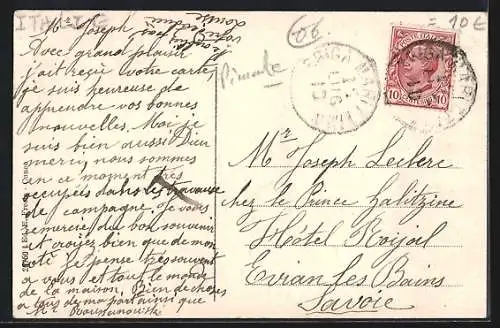 ITALIE
= 10€
06
Mr Joseph
Avec grand plaisir
j'ait reçu votre carte
je suis heureuse de
apprendre vos bonnes
nouvelles. Moi je
suis bien aussi Dieu
merci, nous sommes
en ce moment très
occupées dans les travause
de campagne. Je vous
remercie du bon souvenir
et croiez bien que de mon
coté je pense très souvent
a vous et tout le monde
de la maison. Bien de choses
a tous de ma part ainsi que
Mr
Louise
Piemonte
BRIGA MARITTIMA
POSTE ITALIANE
10 10
Mr Joseph Leclerc
chez le Prince Galitzine
Hôtel Royal
Evian les Bains
Savoie